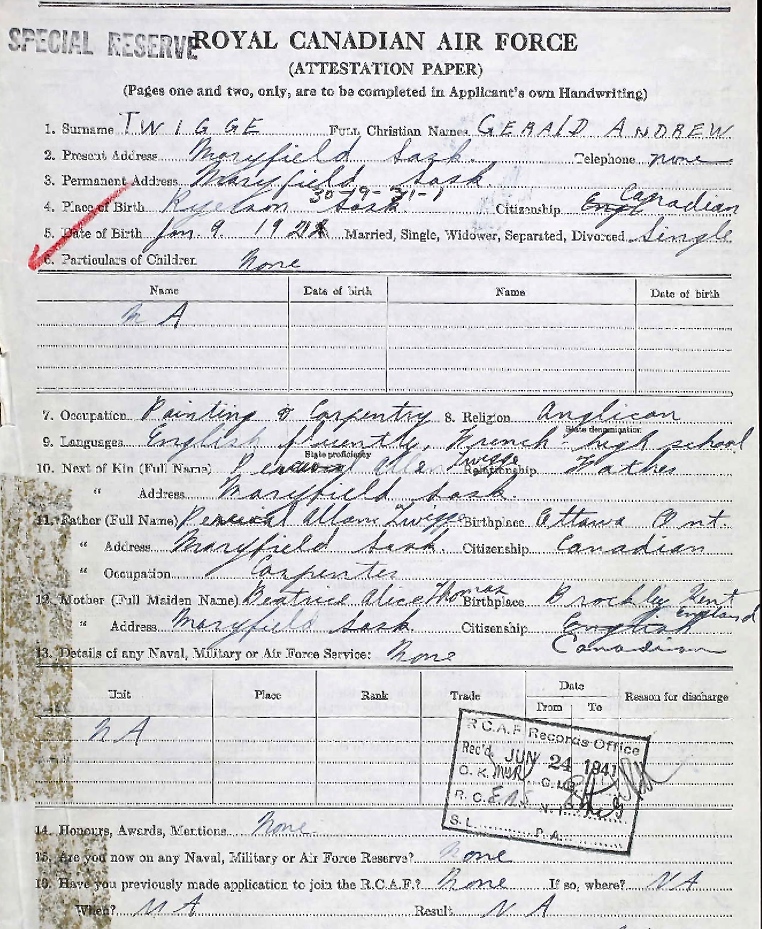 SPECIAL RESERVE
ROYAL CANADIAN AIR FORCE
(ATTESTATION PAPER)
(Pages one and two, only, are to be completed in Applicant's own Handwriting)
1. Surname TWIGGE Full Christian Names GERALD ANDREW
2. Present Address Maryfield Sask. Telephone none
3. Permanent Address Maryfield Sask
4. Place of Birth Ryerson Sask Citizenship Canadian
5. Date of Birth Jan 9 192 Married, Single, Widower, Separated, Divorced Single
6. Particulars of Children None
Name Date of birth Name Date of birth
N A
7. Occupation Painting & Carpentry 8. Religion Anglican
State denomination
9. Languages English fluently, French high school
State proficiency
10. Next of Kin (Full Name) Percival Allan Twigge Relationship Father
" Address Maryfield Sask
11. Father (Full Name) Percival Allan Twigge Birthplace Ottawa Ont.
" Address Maryfield Sask. Citizenship Canadian
" Occupation Carpenter
12. Mother (Full Maiden Name) Beatrice Alice Thomas Birthplace Brockley Kent England
" Address Maryfield Sask Citizenship English
Canadian
13. Details of any Naval, Military or Air Force Service: None
Unit Place Rank Trade Date From To Reason for discharge
N A
R.C.A.F. Records Office
Rec'd. JUN 24 1941
O.K.
R.C.
S.L. P.A.
14. Honours, Awards, Mentions None
15. Are you now on any Naval, Military or Air Force Reserve? None
16. Have you previously made application to join the R.C.A.F.? None If so, where? NA
When? N A Result N A